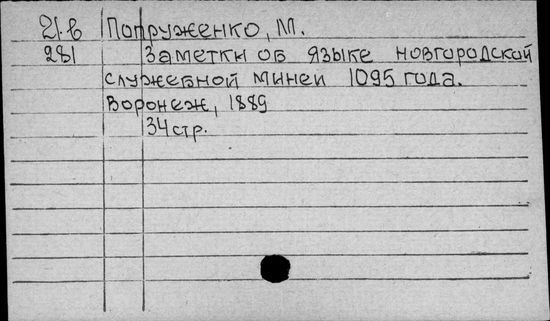 21.в Попруженко, М.
281 Заметки об языке новгородской
служебной минеи 1095 года.
Воронеж, 1889
34 стр.